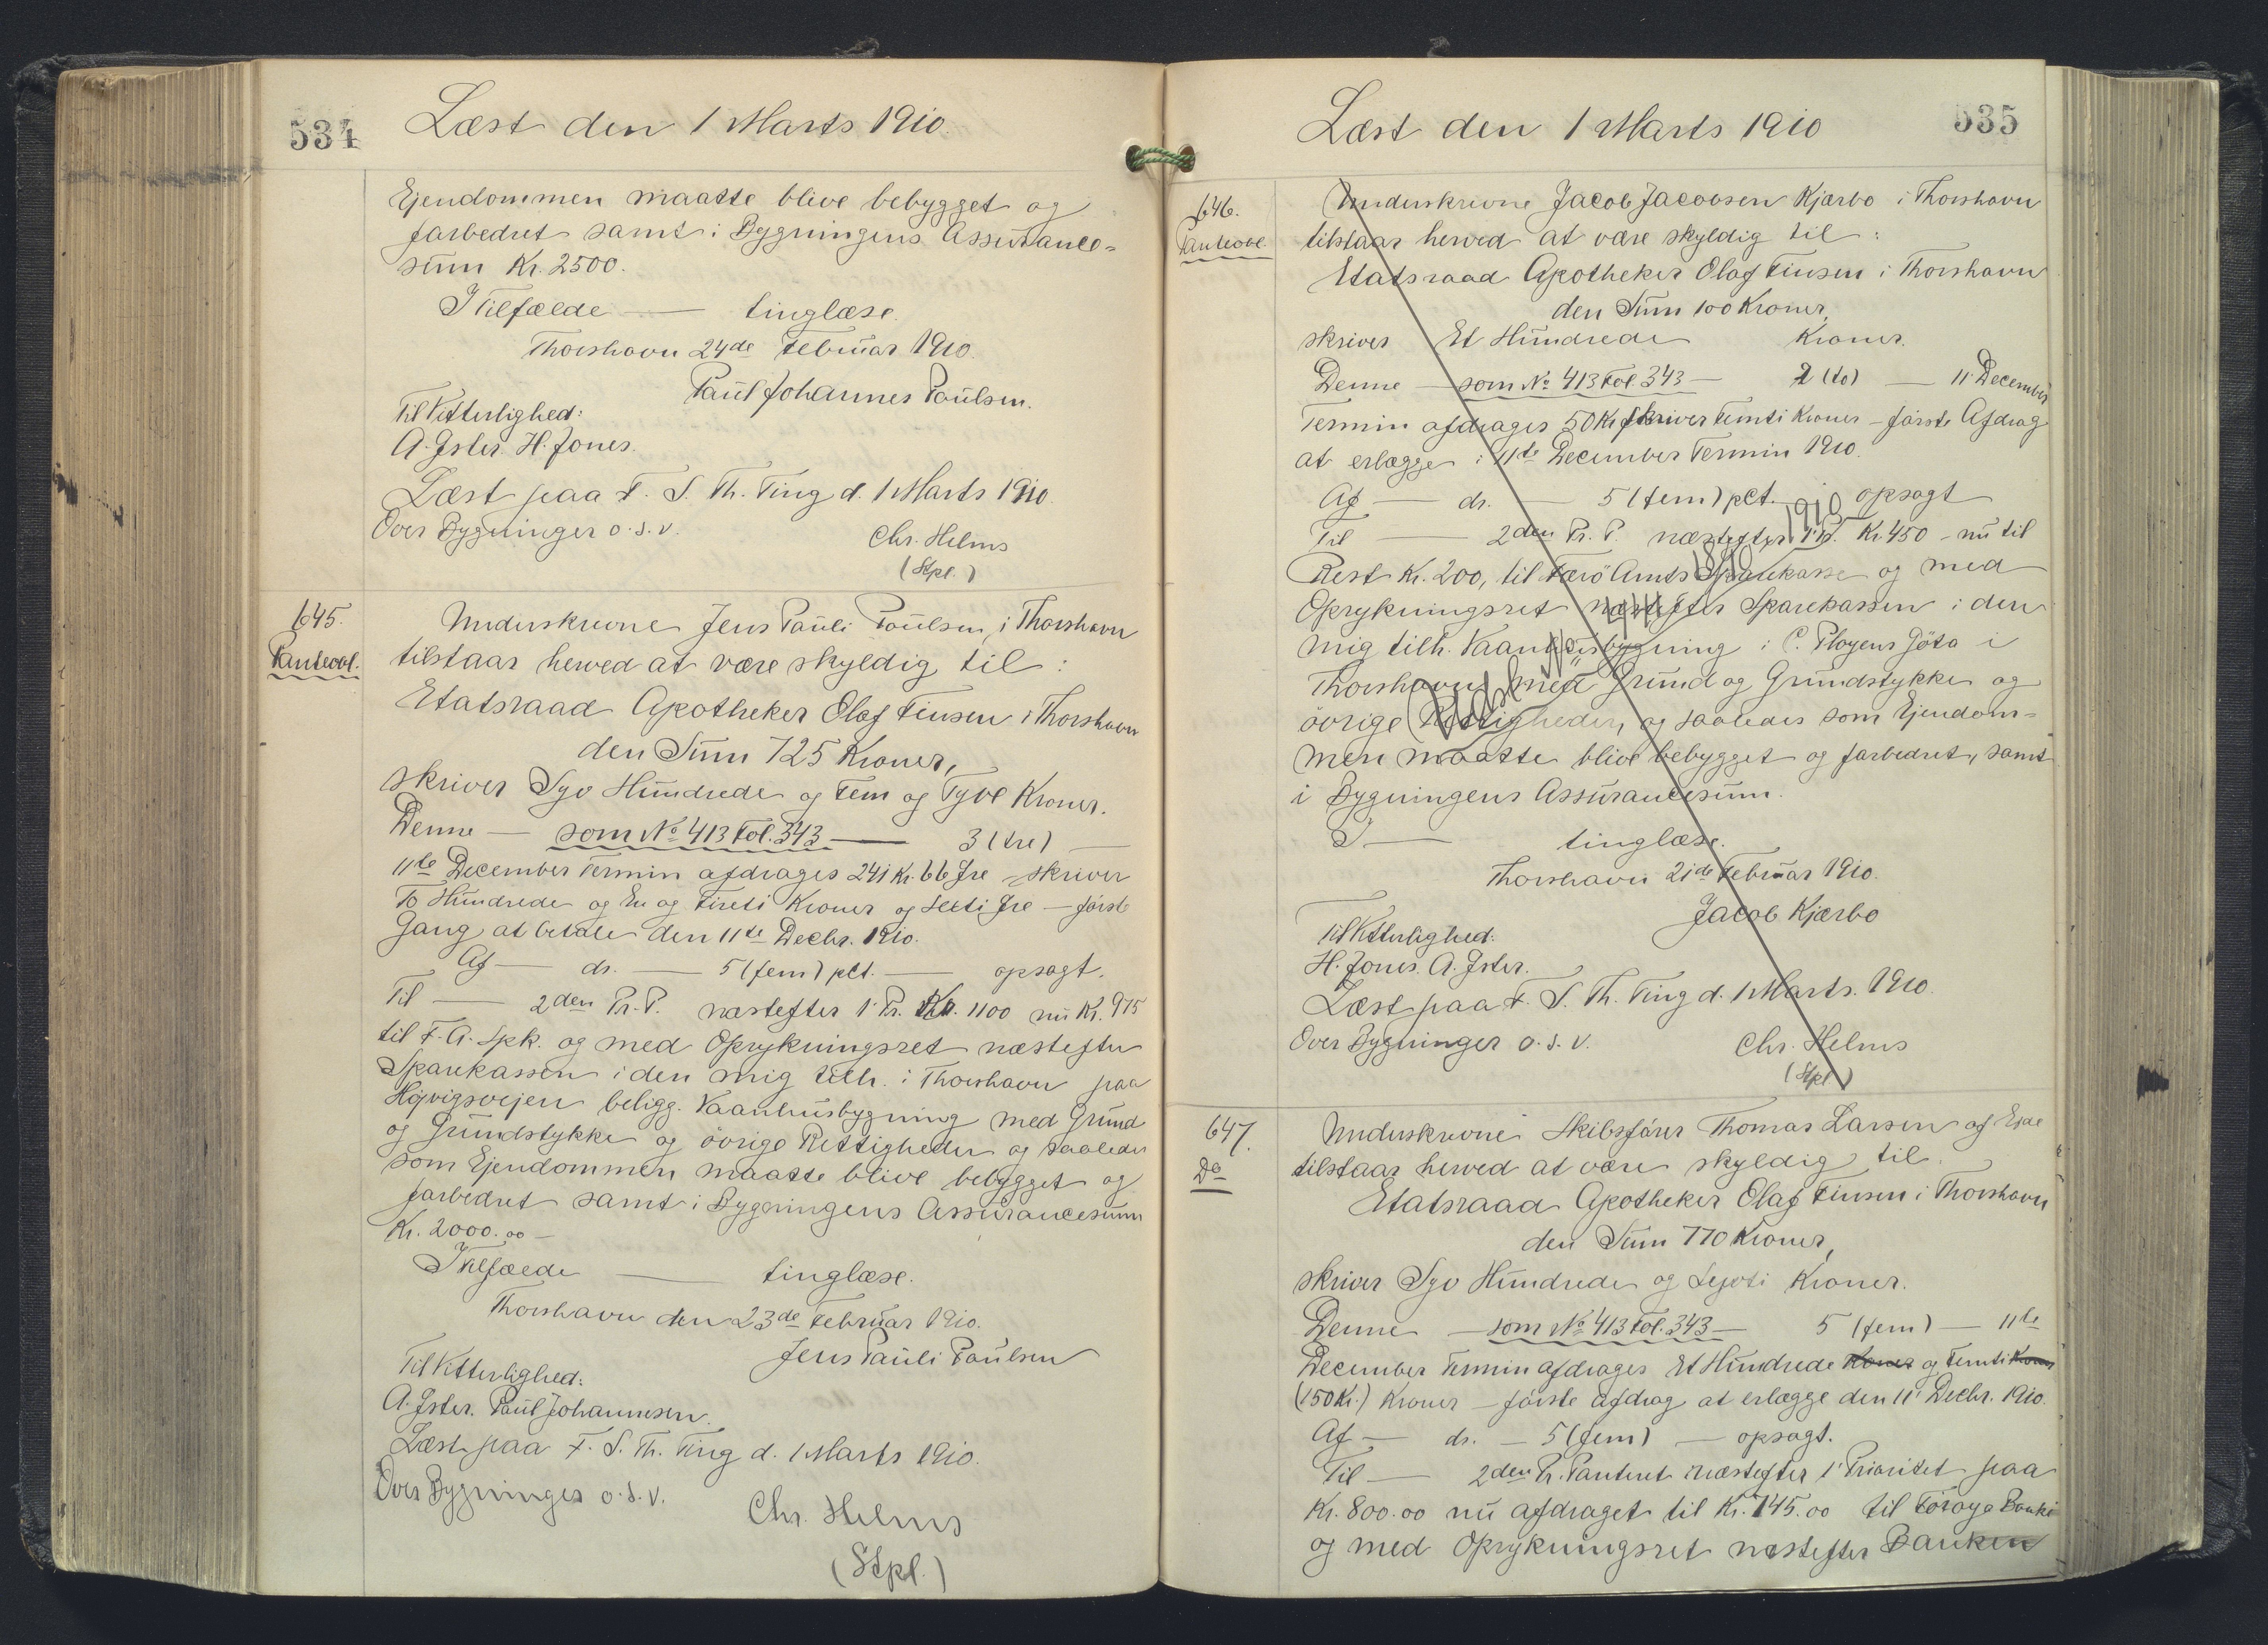 534
Læst den 1 Marts 1910.
Ejendommen maatte blive bebygget og
forbedret samt i Bygningens Assurance=
sum Kr. 2500.
I Tilfælde — tinglæse.
Thorshavn 24de Februar 1910.
Paul Johannes Poulsen.
Til Vitterlighed:
A. Ister. H. Jones.
Læst paa F. S. Th. Ting d. 1 Marts 1910.
Over Bygninger o.s.v.
Chr. Helms
(Stpl.)
645.
Panteobl.
Underskrevne Jens Pauli Poulsen, i Thorshavn
tilstaar herved at være skyldig til:
Etatsraad Apotheker Olaf Finsen i Thorshavn
den Sum 725 Kroner,
skriver Syv Hundrede og Fem og Tyve Kroner.
Denne — som No 413 Fol. 343 — 3 (tre) —
11te December Termin afdrages 241 Kr. 66 Øre – skriver
To Hundrede og En og Fireti Kroner og Øre – först
Gang at betale den 11te Decbr. 1910.
Af — dr. — 5 (fem) pct. — opsagt.
Til — 2den Pr. P. næstefter 1' Pr. Kr. 1100 nu Kr. 975
til F. A. Spk. og med Oprykningsret næstefter
Sparekassen i den mig tilh. i Thorshavn paa
Højvigsvejen beligg. Vaanhusbygning med Grund
og Grundstykke og övrige Rettigheder og saaledes
som Ejendommen maatte blive bebygget og
forbedret samt i Bygningens Assurancesum
Kr. 2000.00 –
I Tilfælde — tinglæse.
Thorshavn den 23de Februar 1910.
Jens Pauli Poulsen
Til Vitterlighed:
A. Ister. Paul Johannesen.
Læst paa F. S. Th. Ting d. 1 Marts 1910.
Over Bygninger o.s.v.
Chr. Helms
(Stpl.)
535
Læst den 1 Marts 1910
646.
Panteobl
Underskrevne Jacob Jacobsen Kjærbo i Thorshavn
tilstaar herved at være skyldig til:
Etatsraad Apotheker Olaf Finsen i Thorshavn
den Sum 100 Kroner,
skriver Et Hundrede Kroner.
Denne — som No 413 Fol. 343 — 2 (to) — 11' December
Termin afdrages 50 Kr skriver Femti Kroner – förste Afdrag
at erlægge i 11te December Termin 1910.
Af — dr. — 5 (fem) pct. — opsagt
Til — 2den Pr. P. næstefter 1' Pr. Kr. 450 – nu til
Rest Kr. 200, til Færö Amts Sparekasse og med
Oprykningsret næstefter Sparekassen i den
mig tilh. Vaanhusbygning i C. Pløyens Göta i
Thorshavn med Grund og Grundstykke og
övrige Rettigheder, og saaledes som Ejendom=
men maatte blive bebygget og forbedret, samt
i Bygningens Assurancesum.
I — tinglæse.
Thorshavn 21de Februar 1910.
Jacob Kjærbo
Til Vitterlighed:
H. Jones. A. Ister.
Læst paa F. S. Th. Ting d. 1 Marts. 1910.
Over Bygninger o.s.v.
Chr. Helms
(Stpl)
647.
Do
Underskrevne Skibsförer Thomas Larsen af Ejde
tilstaar herved at være skyldig til.
Etatsraad Apotheker Olaf Finsen i Thorshavn
den Sum 770 Kroner,
skriver Syv Hundrede og Syvti Kroner.
Denne — som No 413 Fol. 343 — 5 (fem) — 11te
December Termin afdrages Et Hundrede Kroner og Femti Kroner
(150 Kr.) Kroner – förste Afdrag at erlægge den 11' Decbr. 1910.
Af — dr. — 5 (fem) — opsagt.
Til — 2den Pr. Panteret næstefter 1' Prioritet paa
Kr. 800.00 nu afdraget til Kr. 745.00 til Föroya Banki
og med Oprykningsret næstefter Banken